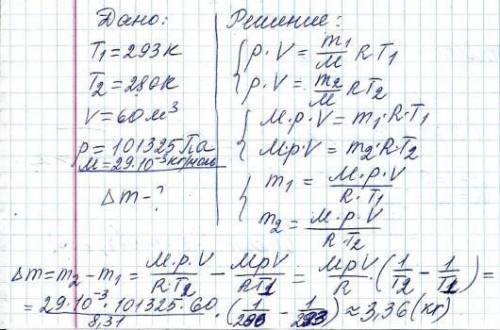 Дано:
T₁=293к
T₂=280к
V=60м³
p=101325Па
M=29·10⁻³кг/моль
Δm-?
Решение:
{ p·V = m₁/M RT₁
p·V = m₂/M RT₂
{ M·p·V = m₁·R·T₁
MpV = m₂·R·T₂
{ m₁ = M·p·V / R·T₁
m₂ = M·p·V / R·T₂
Δm = m₂ - m₁ = M·p·V / R·T₂ - MpV / RT1 = MpV / R · (1/T₂ - 1/T1) =
= 29·10⁻³·101325·60 / 8,31 · (1/280 - 1/293) ≈ 3,36 (кг)